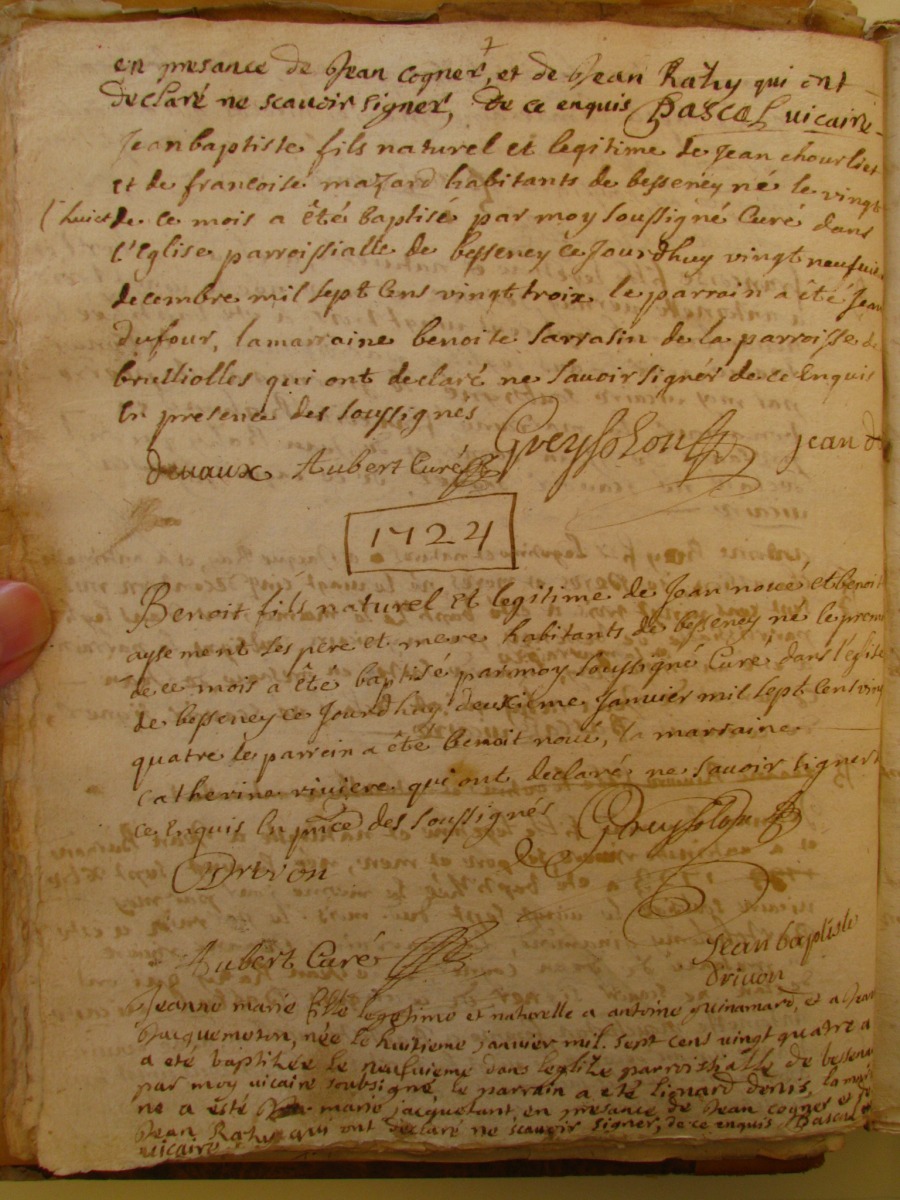 en presance de Jean cogner, et de Jean Rahy qui ont
declaré ne scauoir signer, De ce enquis PASCAL uicaire
Jean baptiste fils naturel et legitime de Jean chourliet
et de francoise mazard habitants de besseney né le vingt
huict de ce mois a êté baptisé par moy soussigné Curé dans
l'Eglise parroissialle de besseney ce Jourdhuy vingt neufuie
decembre mil sept Cens vingt troix le parrain a été Jean
dufour, la marraine benoite sarrasin de la parroisse de
brulliolles qui ont declaré ne savoir signér de ce Enquis
En presence des soussignes
Greysolon Jean d
devaux Aubert Curé
1724
Benoit fils naturel et legitime de Jean noué et benoit
aysement ses pere et mere habitants de besseney né le premi
de ce mois a êté baptisé par moy soussigné Curé dans l'eglise
de besseney ce Jourdhuy deuxieme Janvier mil sept Cens ving
quatre le parrein a êté benoit noué, la marraine
Catherine riviere qui ont declaré ne savoir signer
ce Enquis En pnce des soussignés Greysolon
Drivon
Aubert Curé
Jean baptiste
drivon
Jeanne marie fille legetime et naturelle a antoine guinamard, et a Jean
Jacquemeton, née le huitieme janvier mil sept cens vingt quatre a
a eté baptisée le neufuieme dans leglise parroissialle de bessenai
par moy uicaire soubsigné le parrain a eté lienard denis, la marai
ne a êsté marie jacquetant, en presance de Jean cogner et de
Jean Rahy qui ont declaré ne scauoir signer, de ce enquis PASCAL
uicaire